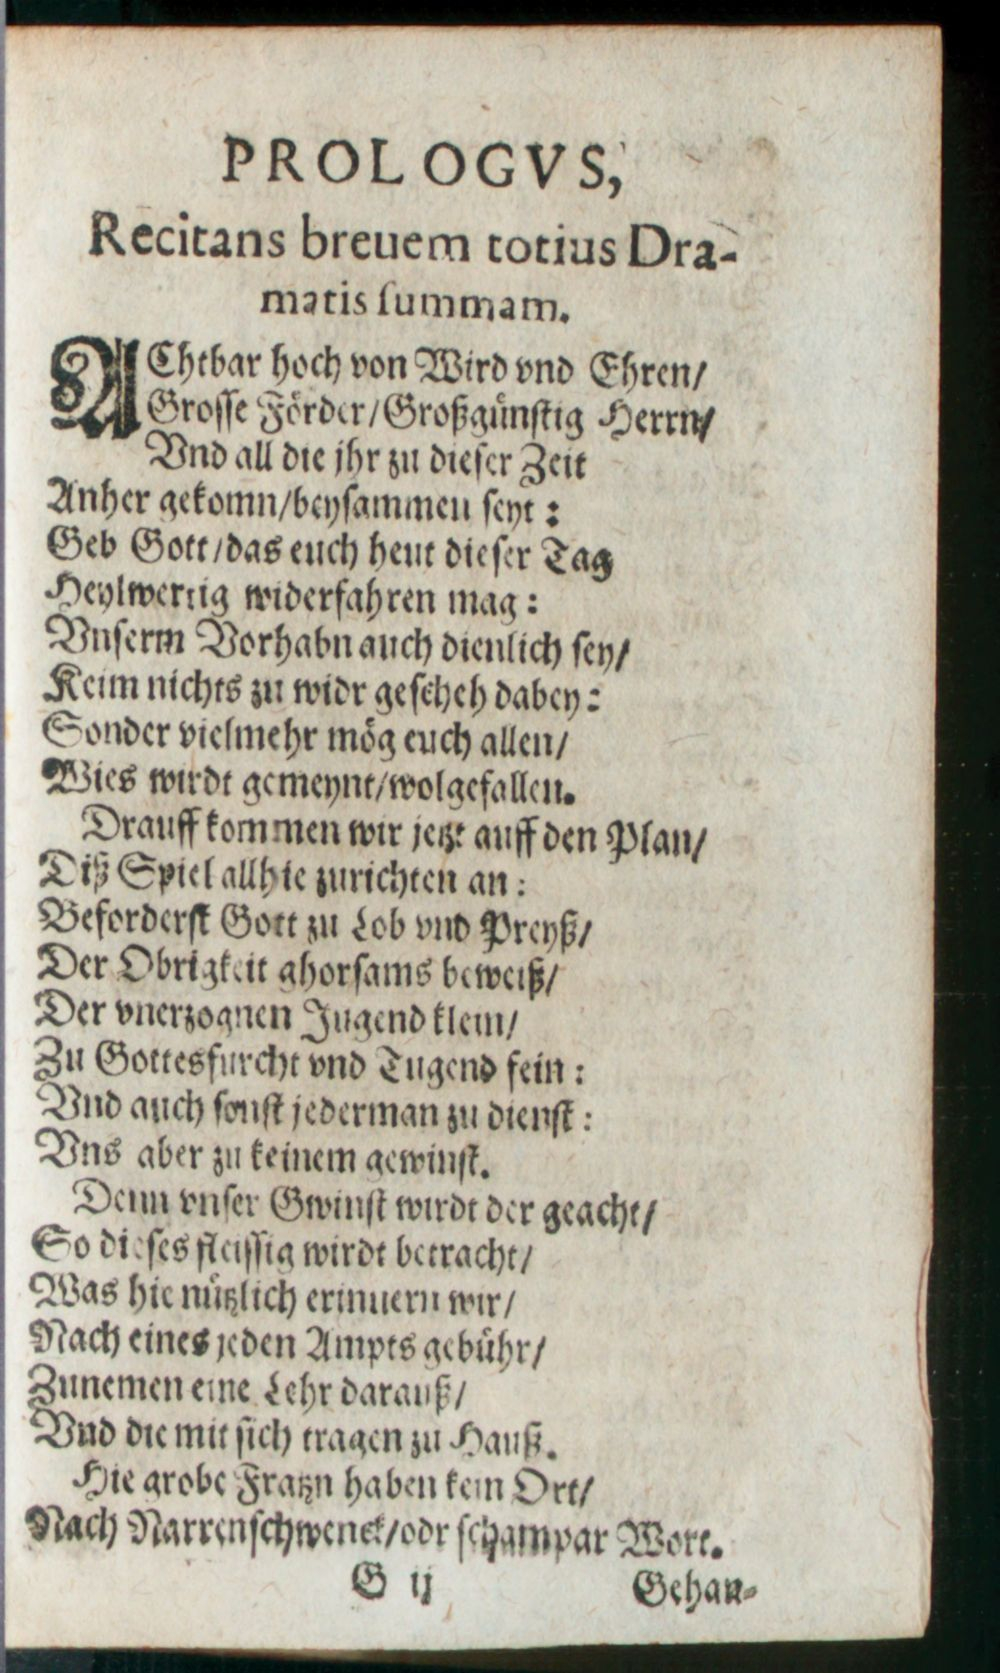 PROLOGVS,
Recitans breuem totius Dra-
matis summam.
AChtbar hoch von Wird vnd Ehren/
Grosse Förder/Großgünstig Herrn/
Vnd all die jhr zu dieser Zeit
Anher gekomn/beysammen seyt:
Geb Gott/das euch heut dieser Tag
Heylwertig widerfahren mag:
Vnserm Vorhabn auch dienlich sey/
Keim nichts zu widr gescheh dabey:
Sonder vielmehr mög euch allen/
Wies wirdt gemeynt/wolgefallen.
Drauff kommen wir jetzt auff den Plan/
Diß Spiel allhie zurichten an:
Beforderst Gott zu Lob vnd Preyß/
Der Obrigkeit ghorsams beweiß/
Der vnerzognen Jugend klein/
Zu Gottesfurcht vnd Tugend fein:
Vnd auch sonst jederman zu dienst:
Vns aber zu keinem gewinst.
Denn vnser Gwinst wirdt der geacht/
So dieses fleissig wirdt betracht/
Was hie nützlich erinnern wir/
Nach eines jeden Ampts gebühr/
Zunemen eine Lehr darauß/
Vnd die mit sich tragen zu Hauß.
Hie grobe Fratzn haben kein Ort/
Nach Narrenschwenck/odr schampar Wort.
G ij
Gehan-